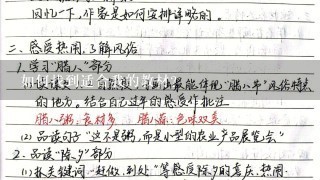 回忆一下,作家是如何安排详略的。
二、感受热闹,了解风俗
1.学习“腊八”部分
如何找到适合我的教材
最能体现“腊八节”风俗特点
的地方。结合自己过年的感受作批注
腊八粥:食材多 腊八蒜:色味双美
(2)品读句子“这不是粥,而是小型的农业产品展览会”
2.品读“除夕”部分
(1)抓关键词:赶做、到处